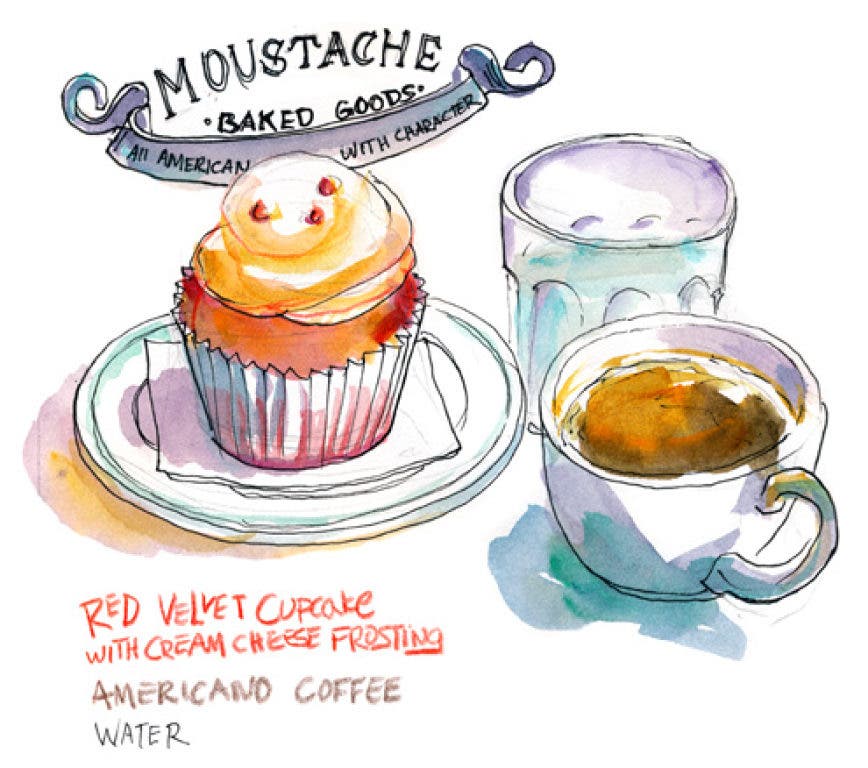 MOUSTACHE
• BAKED GOODS •
All AMERICAN WITH CHARACTER
RED VELVET CUPCAKE
WITH CREAM CHEESE FROSTING
AMERICANO COFFEE
WATER